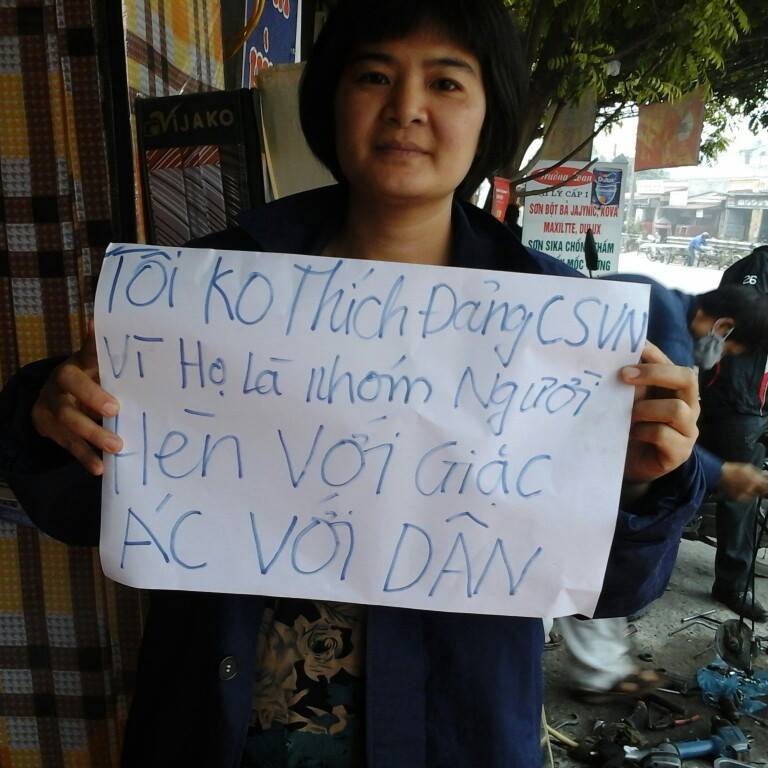 VIJAKO
Tôi KO Thích Đảng CSVN
Vì Họ Là Nhóm Người
Hèn Với Giặc
ÁC VỚI DÂN
LÝ CẤP I
SƠN BỘT BẢ JAJYNIC, KOVA
MAXILTTE, DULUX
SƠN SIKA CHỐNG THẤM
MỐC
26